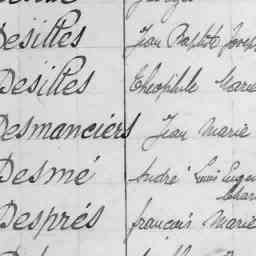 Desilles Jean Baptiste Joseph
Desilles Théophile Marie
Desmanciers Jean Marie
Desmé André Louis Eugène
Char
Després françois Marie